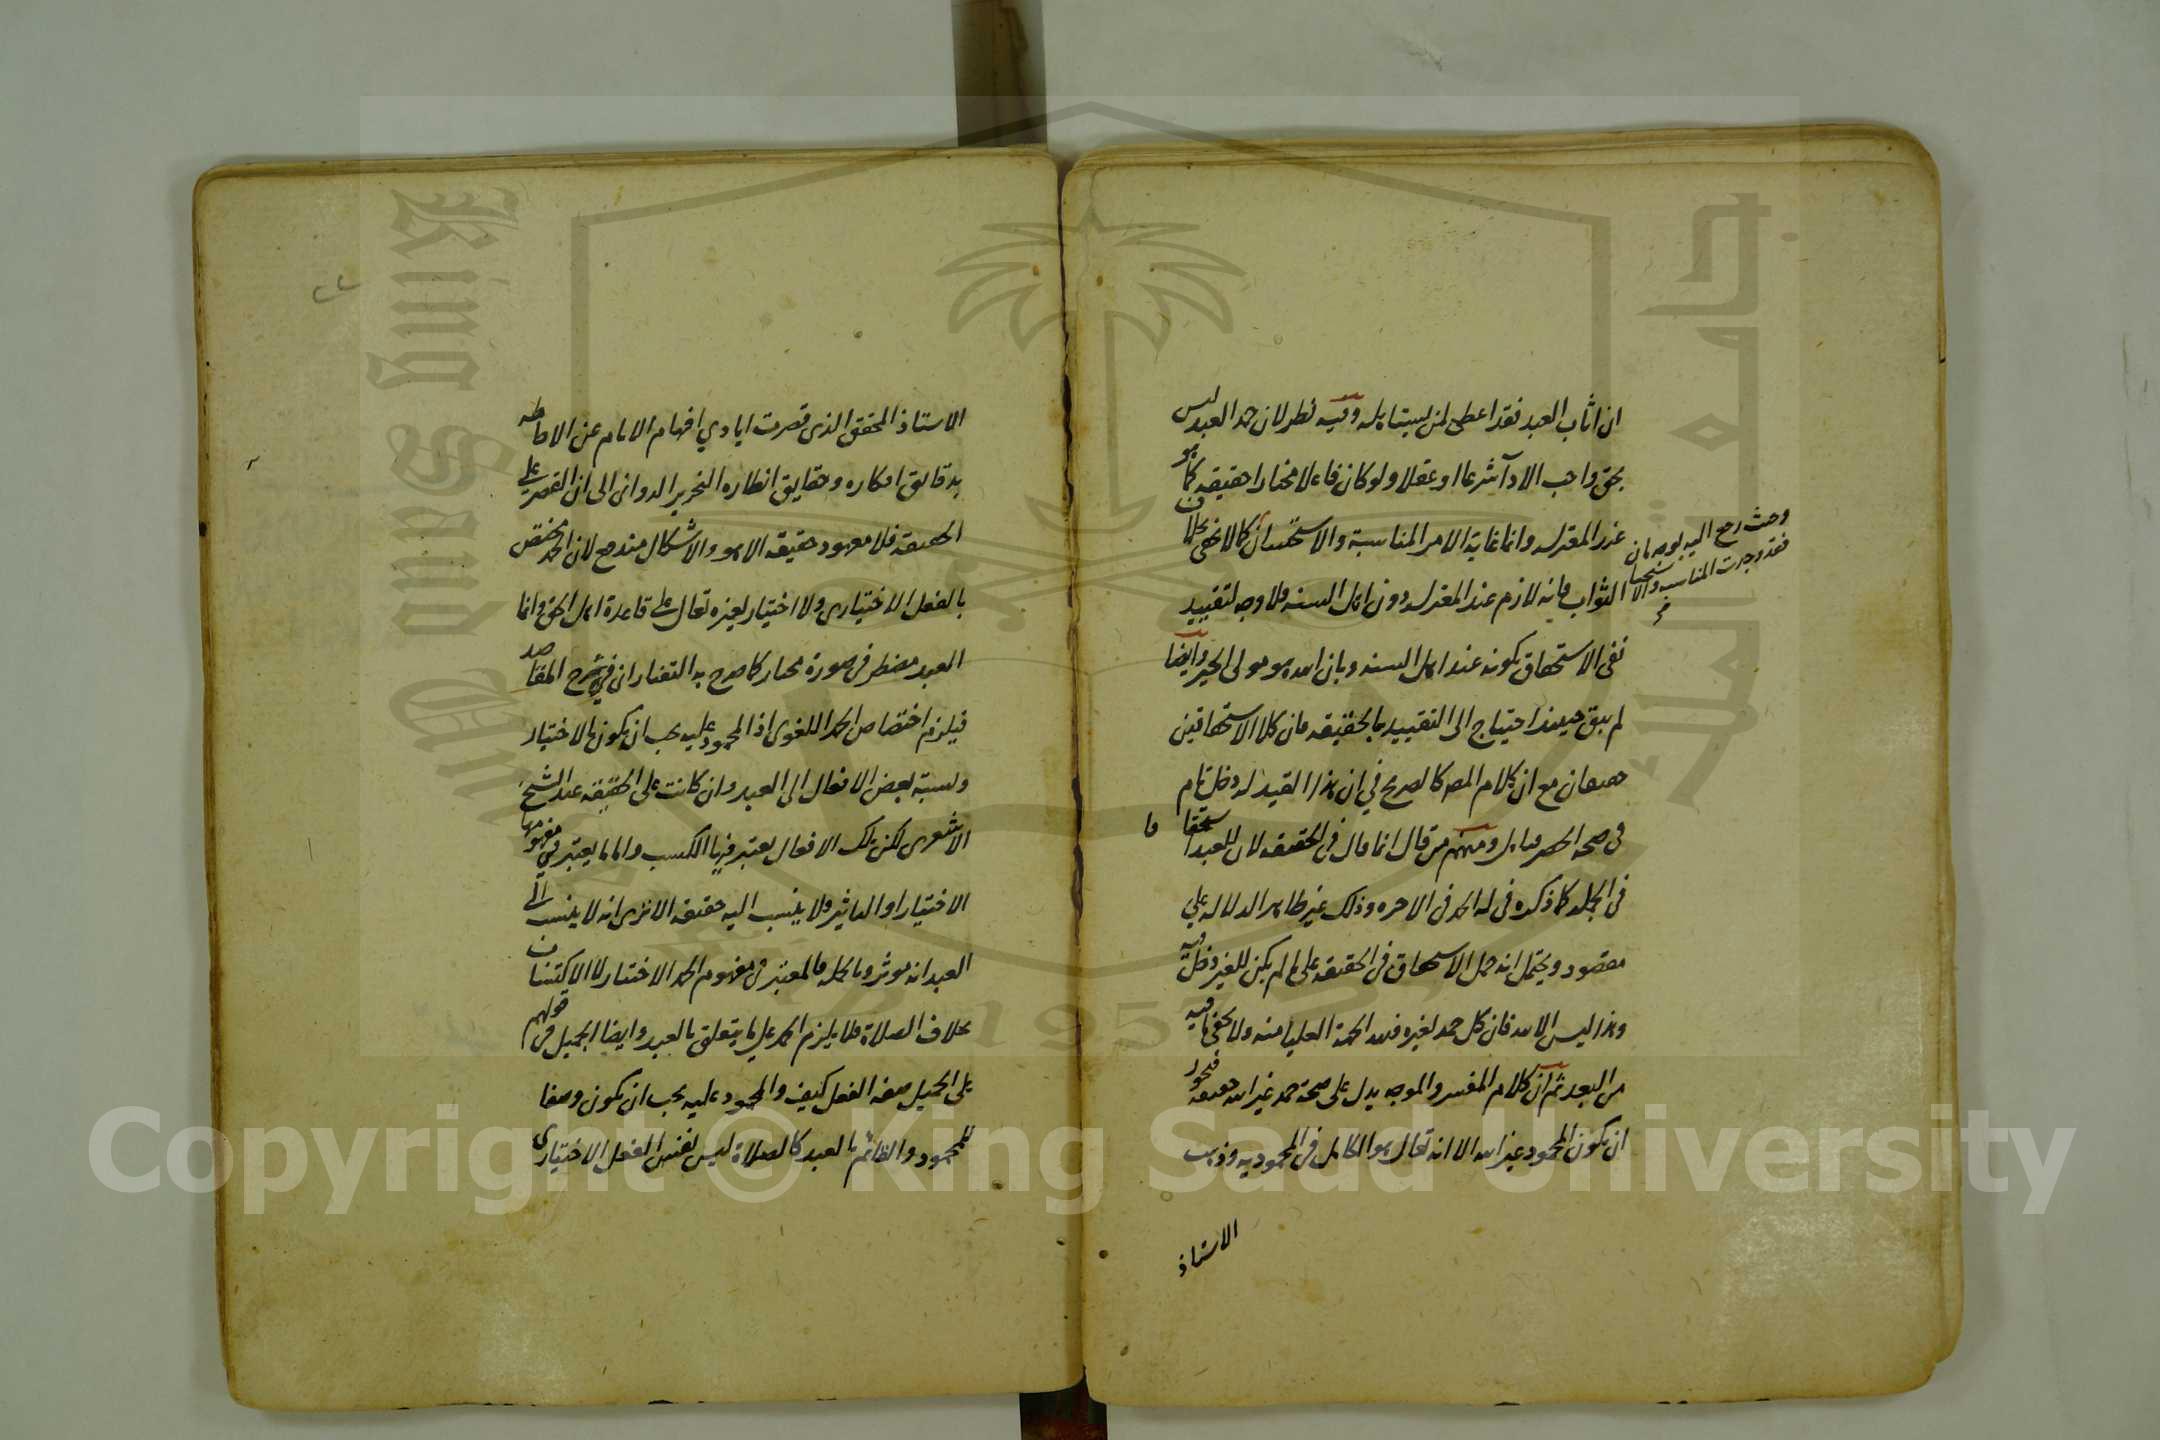 ان اثاب العبد فقد اعطى لمن ليستاهله وفيه نظر لان حمد العبد ليس
بحق واجب الادآ شرعا او عقلا ولو كان فاعلا مختارا حقيقة كما هو
عند المعتزلة وانما غاية الامر المناسبة والاستحسان كما لا يخفى بخلاف
الثواب فانه لازم عند المعتزلة دون اهل السنة فلا وجه لتقييد
نفى الاستحقاق بكونه عند اهل السنة وبان الله هو مولى الخير وايضا
لم يبق حينئذ احتياج الى التقييد بالحقيقة فان كلا الاستحقاقين
مع ان كلام المص كالصريح في ان هذا القيد له دخل تام
فى صحة الحصر ومنهم من قال انما قال فى الحقيقة لان للعبد استحقاقا
فى الجملة كما ذكره فى له الحمد فى الاخرة وذلك غير ظاهر الدلالة على
مقصود ويحتمل انه حمل الاستحقاق فى الحقيقة على ما لم يكن للغير دخل فيه
وهذا ليس الا لله فان كل حمد لغيره فلله الجهة العليا منه ولا يخفى ما فيه
من البعد ثم ان كلام المفسر والموجه يدل على صحة حمد غير الله حقيقة فيجوز
ان يكون المحمود غير الله الا انه تعالى هو الكامل فى المحمودية وذهب
الاستاذ
وحيث رجع اليه بوجه ما
فقد وجدت المناسبة والاستحسان
الاستاذ المحقق الذى قصرت ايادي افهام الانام عن الاحاطة
بدقائق افكاره وحقايق انظاره النحرير الدوانى الى ان القصر على
الحقيقة فلا معبود حقيقة الا هو والاشكال مندفع لان الحمد مختص
بالفعل الاختيارى ولا اختيار لغيره تعالى على قاعدة اهل الحق وانما
العبد مضطر فى صورة مختار كما صرح به التفتازانى في شرح المقاصد
فيلزم اختصاص الحمد اللغوى اذ المحمود عليه يجب ان يكون بالاختيار
ونسبة بعض الافعال الى العبد وان كانت على الحقيقة عند الشيخ
الاشعرى لكن تلك الافعال يعتبر فيها الكسب واما ما يعتبر في مفهومها
الاختيار او التاثير فلا ينسب اليه حقيقة الا ترى انه لا ينسب الى
العبد انه موثر وبالجملة فالمعتبر فى مفهوم الحمد الاختيار لا الاكتساب
بخلاف الصلاة فلا يلزم الحمد على ما يتعلق بالعبد وايضا الجميل فى قولهم
على الجميل صفة الفعل كيف والمحمود عليه يجب ان يكون وصفا
للمحمود والقائم بالعبد كالصلاة ليس نفس الفعل الاختيارى
٢٢
Copyright © King Saud University
King Saud University
جامعة الملك سعود
1957